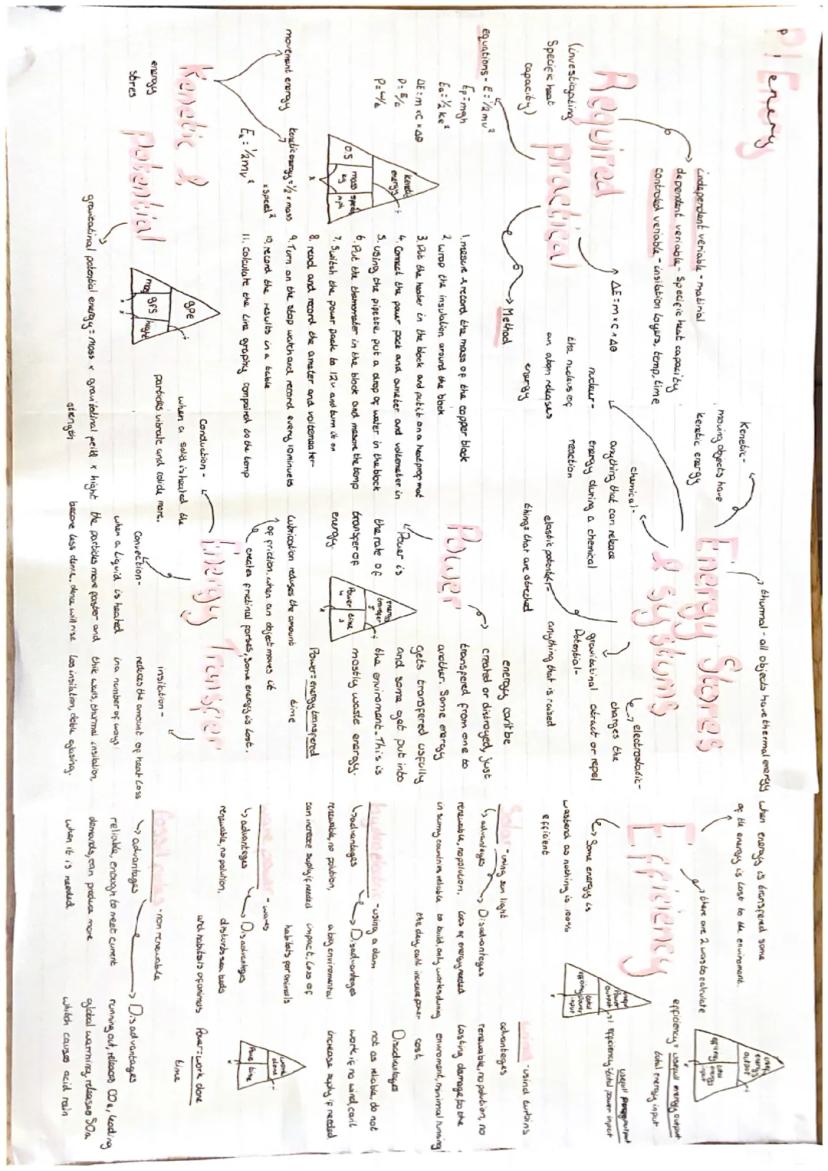 P1 Energy
energy
Required
practical
(investigating
specific heat
capacity)
independent veriable - matinal
dependent veriable - specific heat capacity
controled veriable - insilation layers, temp, time
ΔE = m × c × Δθ
equations - E = 1/2 mv²
Ep = mgh
Ee = 1/2 ke²
ΔE = m × c × Δθ
P = E/t
P = W/t
Method
1. measure & record the mass of the copper block
2. wrap the insulation around the block
3. Put the heater in the block and put it on a heatproof mat
4. Connect the power pack and ameter and voltometer in
5. using the pipette put a drop of water in the block
6. Put the thermometer in the block and mesure the temp
7. Switch the power pack to 12v and turn it on
8. read and record the ameter and voltometer
9. Turn on the stop watch and record every 10 minuets
10. record the results in a table
11. calculate the line graphing compaired to the temp
Kenetic &
potential
energy
stores
movement energy
kenetic energy = 1/2 × mass
× speed²
Ek = 1/2 mv²
kenetic
energy
0.5
mass
kg
speed
gpe
gfs
gravitational potential energy = mass × gravitational feild × hight
strength
Energy Stores
& systems
Kenetic -
moving objects have
kenetic energy
thurmal - all objects have thermal energy
chemical -
anything that can release
energy during a chemical
reaction
nuclear -
the nucleus of
an atom releases
energy
elastic potential -
things that are streched
gravitational
Potential -
anything that is raised
electrostatic -
charges the
atract or repel
Power
Power is
the rate of
transfer of
energy
energy
transfer
Power
w
time
s
Power = energy transfered
time
energy cant be
created or distroyed, just
transfered from one to
another. Some energy
gets transfered usfully
and some get put into
the enviroment. This is
mostly waste energy.
Energy Transfer
lubrication reduses the amount
of friction. when an object moves it
creates frictinal forses, some energy is lost.
Conduction -
when a solid is heated the
particles vibrate and colide more.
Convection -
when a liquid is heated
the particles move faster and
become less dence. dence will rise
insilation -
reduses the amount of heat loss
in a number of ways:
thick walls, thurmal insilation,
loss insilation, doble glasing.
Efficiency
when energy is transfered some
of the energy is lost to the enviroment.
there are 2 ways to calculate
efficiency = usefull energy output
total energy input
efficiency = usefull power output
total power input
Some energy is
wasted as nothing is 100%
efficient
Solar - using sun light
advantages
renewable, no polution,
in sunny countries reliable
Disadvantages
loss of energy needed
to build, only works during
the day, cant increase power
Wind - wind turbins
advantages
renewable, no polution, no
lasting damage to the
enviroment, minimal running
cost
Disadvantages
not as reliable, do not
work if no wind, cant
increase suply if needed
hydro electric - using a dam
advantages
renewable, no polution,
can increase suply if needed
Disadvantages
a big enviromental
impact, loss of
habitats for animals
wave power - waves
advantages
renewable, no polution,
Disadvantages
disturbs sea beds
and habitats of animals
work
done
Power
time
Power = work done
time
Fossil fules - non renewable
advantages
reliable, enough to meet current
demands, can produce more
when it is needed
Disadvantages
running out, releases CO2, leading
global warming, releases SO2
which causes acid rain